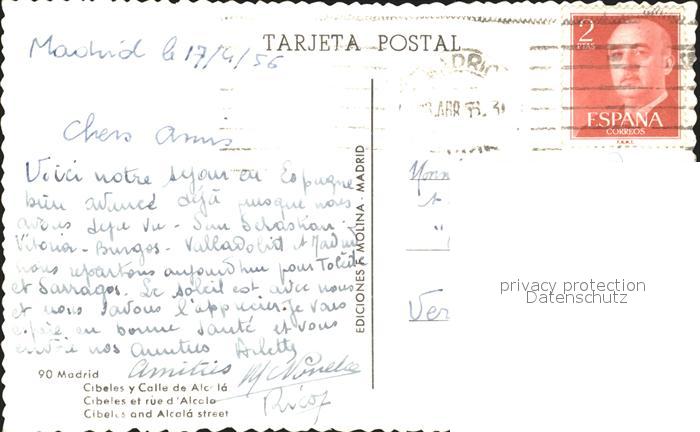 Madrid le 17/4/56
TARJETA POSTAL
2
PTAS
ESPAÑA
CORREOS
F.N.M.T.
Chers amis
Voici notre séjour en Espagne
bien avancé déjà puisque nous
avons déjà vu - San Sébastian
Vitoria - Burgos - Valladolid et Madrid
nous repartons aujourd'hui pour Tolède
et Sarragos. Le soleil est avec nous
et nous savons l'apprécier. Je vous
en bonne santé et vous
nos Amitiés Arlette
Amitiés
EDICIONES A. MOLINA - MADRID
Ver
privacy protection
Datenschutz
90 Madrid
Cibeles y Calle de Alcalá
Cibeles et rue d'Alcala
Cibeles and Alcalá street